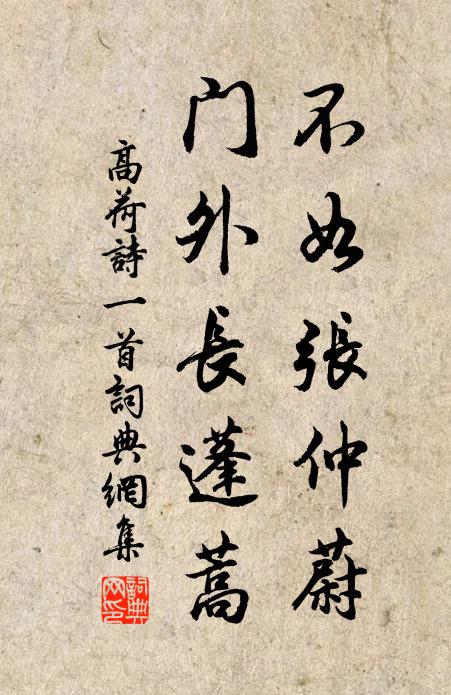 不如張仲蔚
門外長蓬蒿
高荷詩一首詞典網集
詞典網印